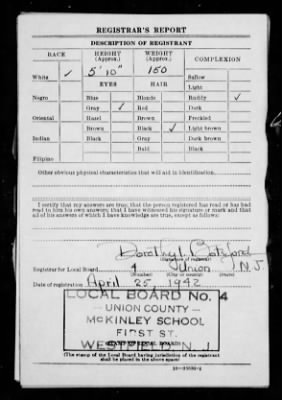 REGISTRAR'S REPORT
DESCRIPTION OF REGISTRANT
RACE HEIGHT (Approx.) WEIGHT (Approx.) COMPLEXION
White ✓ 5' 10" 150 Sallow
EYES HAIR Light
Negro Blue Blonde Ruddy ✓
Gray ✓ Red Dark
Oriental Hazel Brown Freckled
Brown Black ✓ Light brown
Indian Black Gray Dark brown
Bald Black
Filipino
Other obvious physical characteristics that will aid in identification
I certify that my answers are true; that the person registered has read or has had
read to him his own answers; that I have witnessed his signature or mark and that
all of his answers of which I have knowledge are true, except as follows:
Dorothy L
(Signature of registrar)
Registrar for Local Board 4 Union N.J.
(Number) (City or county) (State)
Date of registration April 25, 1942
LOCAL BOARD No. 4
UNION COUNTY
McKINLEY SCHOOL
FIRST ST.
WESTFIELD, N. J.
(The stamp of the Local Board having jurisdiction of the registrant
shall be placed in the above space)